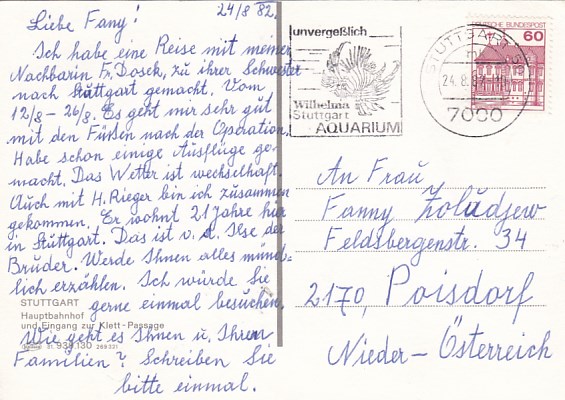 24/8 82.
Liebe Fany!
Ich habe eine Reise mit meiner
Nachbarin Fr. Dosek, zu ihrer Schwester
nach Stuttgart gemacht. Vom
12/8 - 26/8. Es geht mir sehr gut
mit den Füßen nach der Operation.
Habe schon einige Ausflüge ge-
macht. Das Wetter ist wechselhaft.
Auch mit H. Rieger bin ich zusammen
gekommen. Er wohnt 21 Jahre hier
in Stuttgart. Das ist v. d. Ilse der
Bruder. Werde Ihnen alles münd-
lich erzählen. Ich würde Sie
gerne einmal besuchen.
Wie geht es Ihnen u, Ihren
Familien? Schreiben Sie
bitte einmal.
STUTTGART
Hauptbahnhof
und Eingang zur Klett-Passage
51. 938.130 269 321
unvergeßlich
Wilhelma
Stuttgart
AQUARIUM
STUTTGART
24.8.82
7000
DEUTSCHE BUNDESPOST
60
An Frau
Fanny Zoludjew
Feldsbergenstr. 34
2170, Poisdorf
Nieder-Österreich